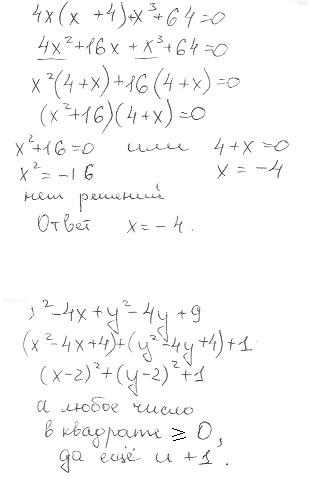 4x(x+4)+x³+64=0
4x²+16x+x³+64=0
x²(4+x)+16(4+x)=0
(x²+16)(4+x)=0
x²+16=0 или 4+x=0
x²=-16 x=-4
нет решений
Ответ x=-4.
²-4x+y²-4y+9
(x²-4x+4)+(y²-4y+4)+1
(x-2)²+(y-2)²+1
а любое число
в квадрате ≥ 0,
да ещё и +1.